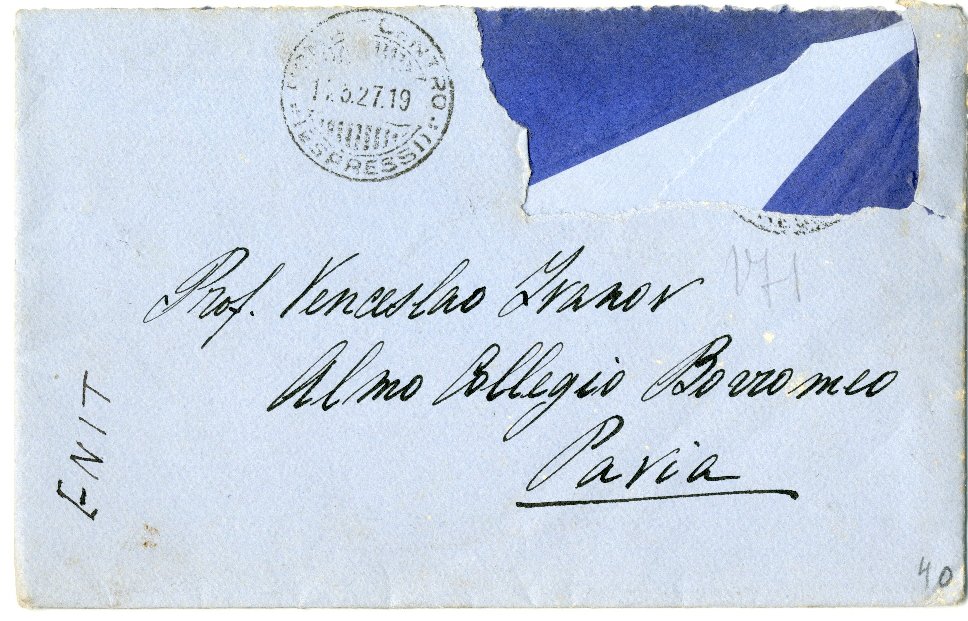 CENTRO
27.19
ESPRESSI
Prof. Venceslao Ivanov
Almo Collegio Borromeo
Pavia
ENIT
40